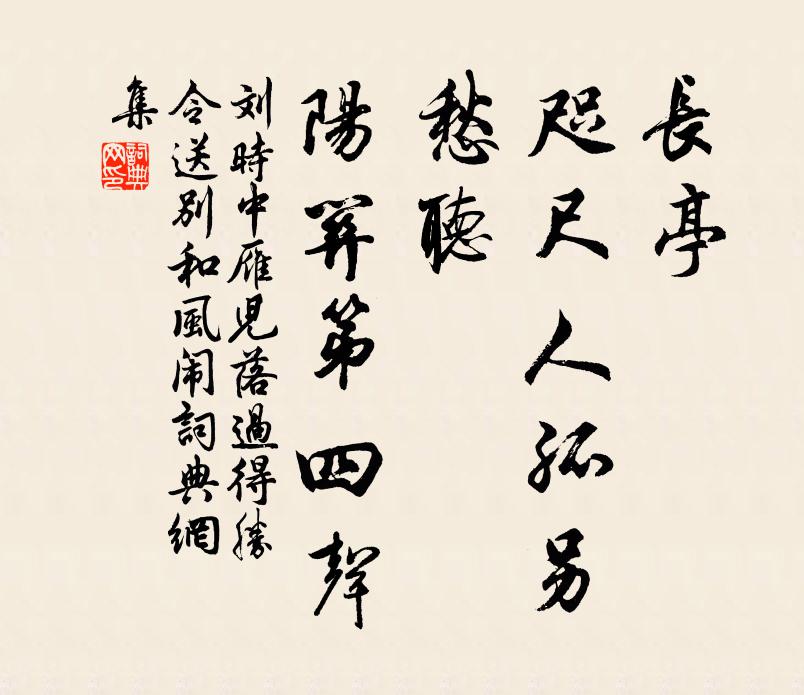 長亭
咫尺人孤另
愁聽
陽關第四聲
刘時中雁児落過得勝
令送别和風闹詞典網
集
詞典
网印